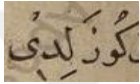 كوزَلدِى